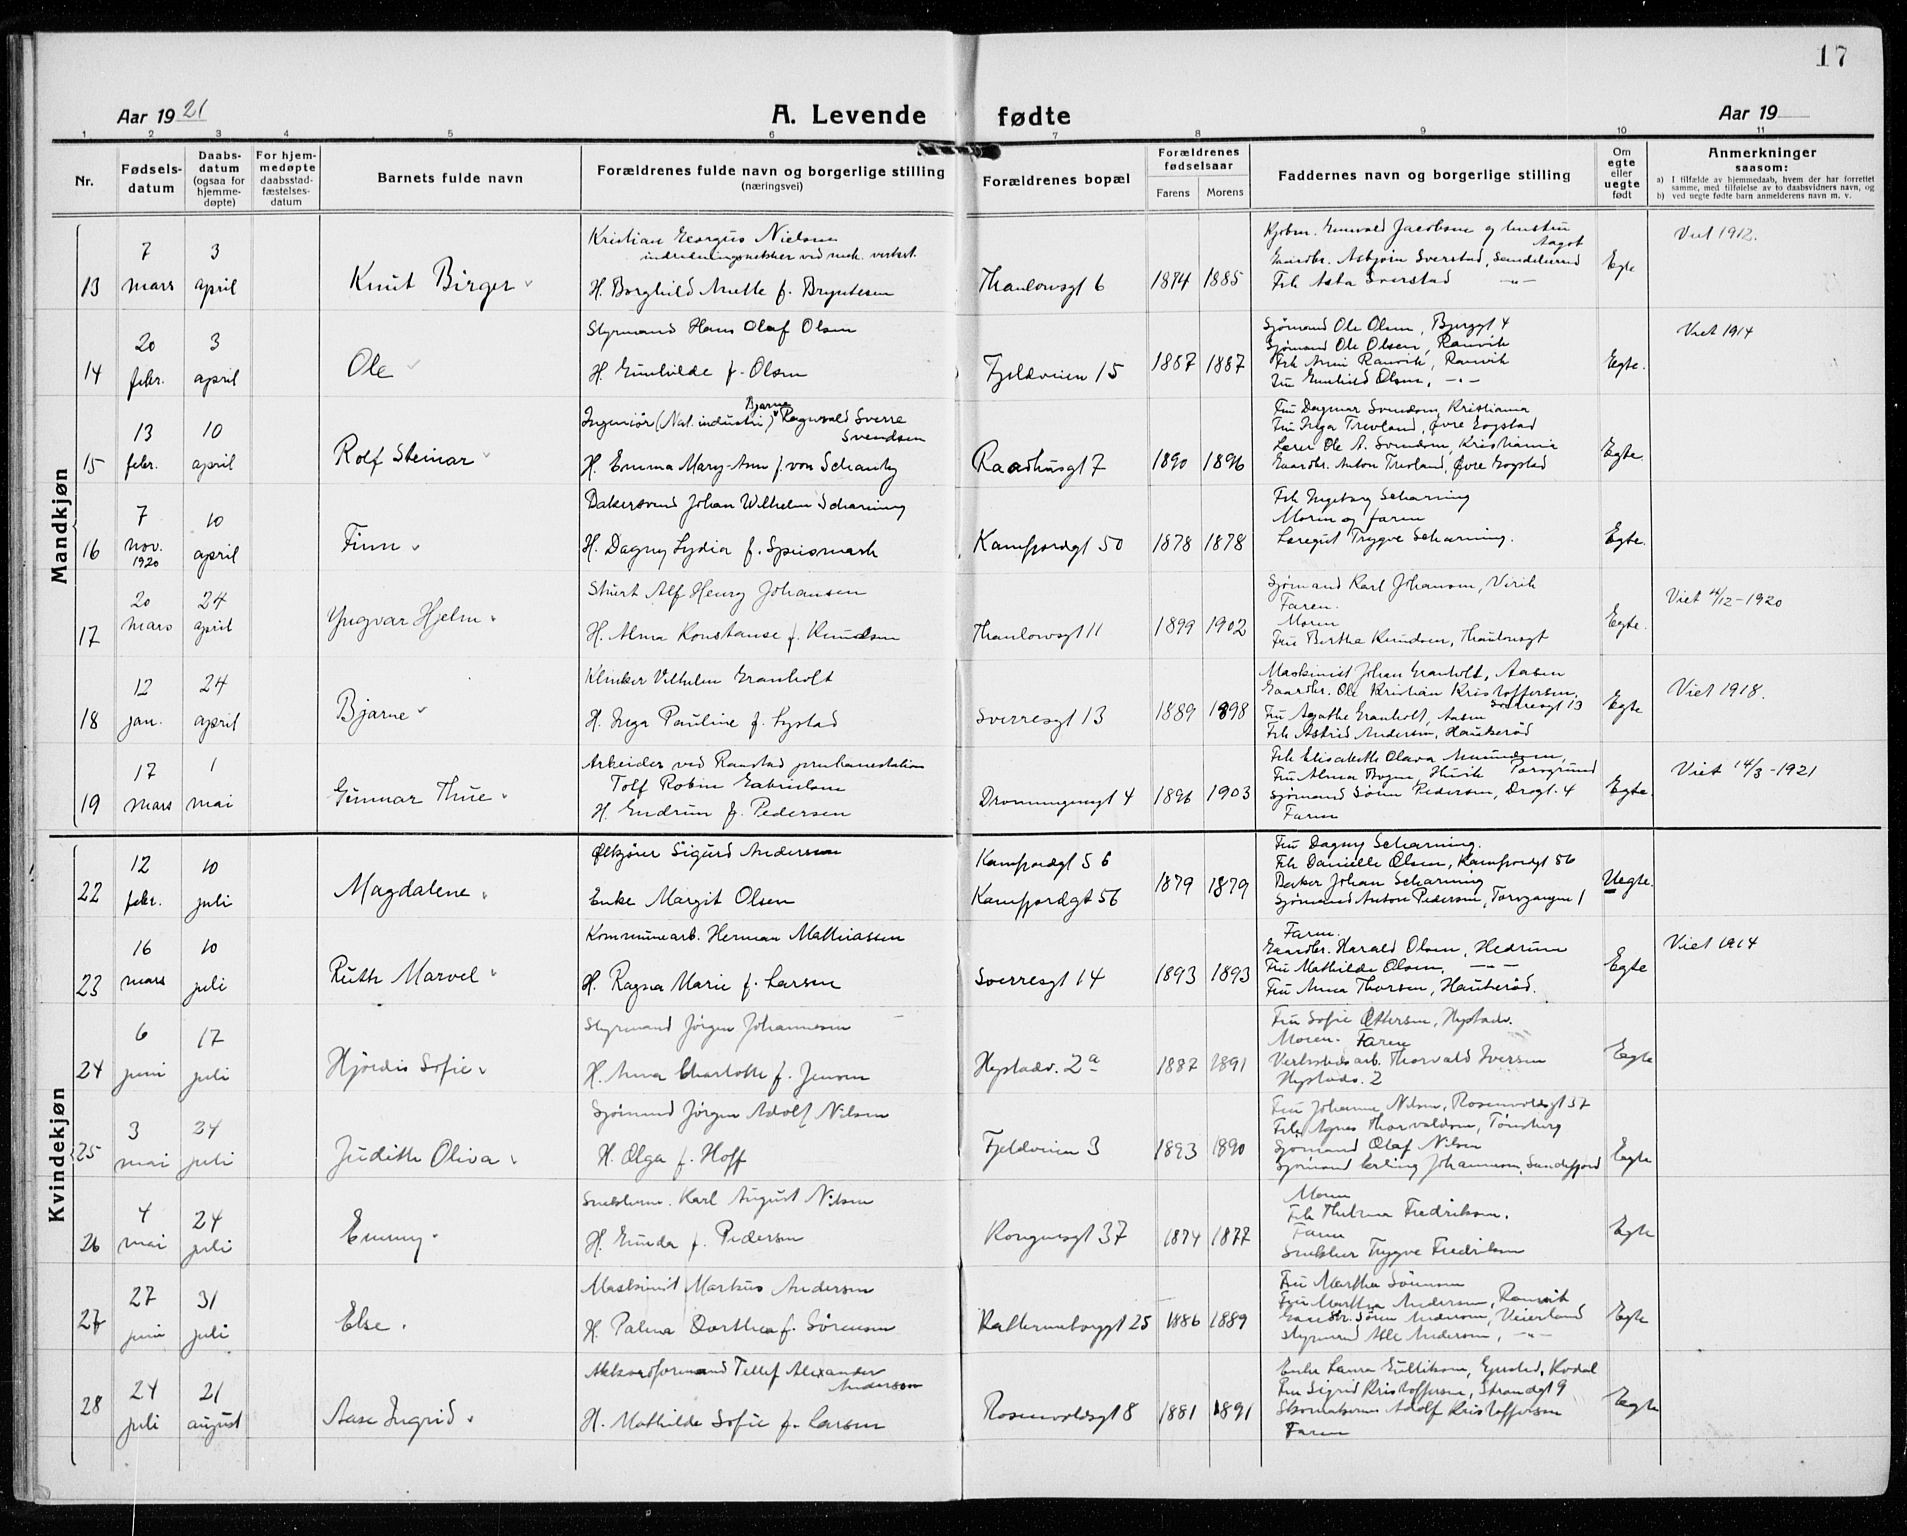 17
Aar 1921 A. Levende fødte Aar 19
1 2 3 4 5 6 7 8 9 10 11
Nr. Fødselsdatum Daabsdatum (ogsaa for hjemmedøpte) For hjemmedøpte daabsstadfæstelsesdatum Barnets fulde navn Forældrenes fulde navn og borgerlige stilling (næringsvei) Forældrenes bopæl Forældrenes fødselsaar Farens Morens Faddernes navn og borgerlige stilling Om egte eller uegte født Anmerkninger saasom:
a) I tilfælde av hjemmedaab, hvem der har forrettet samme, med tilføielse av to daabsvidners navn, og
b) ved uegte fødte barn anmelderens navn m. v.
Mandkjøn
Kristian Georgus Nielsen
13 7 mars 3 april Knut Birger H. Borghild Anette f. Bryntesen Thaulowsgt 6 1894 1885 Egte Viet 1912.
Gaardbr. Asbjørn Sverstad, Sandeherred
Frk Asta Sverstad
Styrmand Hans Olaf Olsen
14 20 febr. 3 april Ole H. Gunhilde f. Olsen Fjeldveien 15 1887 1887 Egte. Viet 1914
Sjømand Ole Olsen, Bjerggt 4
Sjømand Ole Olsen, Ranvik
Frk Anni Ranvik, Ranvik
Fru Gunhild Olsen, -"-
Ingeniør (Nat. industri) Bjarne Ragnvald Sverre Svendsen
15 13 febr. 10 april Rolf Steinar H. Emma Mary-Ann f. von Schantz Raadhusgt 7 1890 1896 Egte.
Fru Dagmar Svendsen, Kristiania
Fru Inga Trevland, Øvre Gogstad
Lærer Ole A. Svendsen, Kristiania
Gaardbr. Anton Trevland, Øvre Gogstad
Bakersvend Johan Wilhelm Scharning
16 7 nov. 1920 10 april Finn H. Dagny Lydia f. Speismark Kamfjordgt 50 1878 1878 Egte.
Frk Ingeborg Scharning
Moren og faren
Læregut Trygve Scharning.
Stuert Alf Henry Johansen
17 20 mars 24 april Yngvar Hjelm H. Alma Konstanse f. Knudsen Thaulowsgt 11 1899 1902 Egte. Viet 4/12-1920
Sjømand Karl Johansen, Virik
Faren.
Moren
Fru Berthe Knudsen, Thaulowsgt
Klinker Vilhelm Granholt
18 12 jan. 24 april Bjarne H. Inga Pauline f. Lystad Sverresgt 13 1889 1898 Egte Viet 1918.
Maskinist Johan Granholt, Aasen
Gaardbr. Ole Kristian Kristoffersen, Sverresgt 13
Fru Agathe Granholt, Aasen
Frk Astrid Andersen, Haukerød
Arbeider ved Raastad pumpestation
Tolf Robin Gabrielsen
19 17 mars 1 mai Gunnar Thue H. Gudrun f. Pedersen Dronningensgt 4 1896 1903 Egte. Viet 14/3-1921
Frk Elisabeth Olava Amundsen, Porsgrund
Sjømand Søren Pedersen, Drogt. 4
Faren
Kvindekjøn
Ølkjører Sigurd Andersen Kamfjordgt 56
22 12 febr. 10 juli Magdalene Enke Margit Olsen Kamfjordgt 56 1879 1879 Uegte.
Fru Dagny Scharning.
Frk Danielle Olsen, Kamfjordgt 56
Baker Johan Scharning
Sjømand Anton Pedersen, Torvgangen 1
Kommunearb. Herman Mathiassen
23 16 mars 10 juli Ruth Marvel H. Ragna Marie f. Larsen Sverresgt 14 1893 1893 Egte Viet 1914
Faren.
Gaardbr. Harald Olsen, Hedrum
Fru Mathilde Olsen, -"-
Fru Anna Thorsen, Haukerød.
Styrmand Jørgen Johannesen
24 6 juni 17 juli Hjørdis Sofie H. Anna Charlotte f. Jensen Nystadv. 2a 1887 1891 Egte
Fru Sofie Ottersen, Nystadv.
Moren. Faren
Verkstedsarb. Thorvald Iversen
Nystadv. 2
Sjømand Jørgen Adolf Nilsen
25 3 mai 24 juli Judith Oliva H. Olga f. Hoff Fjeldveien 3 1893 1890 Egte
Fru Johanne Nilsen, Rosenvoldsgt 37
Frk Agnes Thorvaldsen, Tønsberg
Sjømand Olaf Nilsen
Sjømand Erling Johannesen, Sandefjord
Snekkerm. Karl August Nilsen
26 4 mai 24 juli Emmy H. Gunda f. Pedersen Kongensgt 37 1874 1877 Egte
Moren
Frk Thelma Fredriksen.
Faren
Snekker Trygve Fredriksen
Maskinist Markus Andersen
27 27 juni 31 juli Else H. Palma Dorthea f. Sørensen Pattermeborggt 25 1886 1889 Egte
Fru Martha Sørensen
Fru Martha Andersen, Ranvik
Gaardbr. Søren Andersen, Veierland
Styrmand Alle Andersen, -"-
Akkordformand Tellef Alexander Andersen
28 24 juli 21 august Aase Ingrid H. Mathilde Sofie f. Larsen Rosenvoldsgt 8 1881 1891 Egte
Enke Laura Gulliksen, Gjersted, Kodal
Fru Sigrid Kristoffersen, Strandgt 9
Skomakerm. Adolf Kristoffersen
Faren